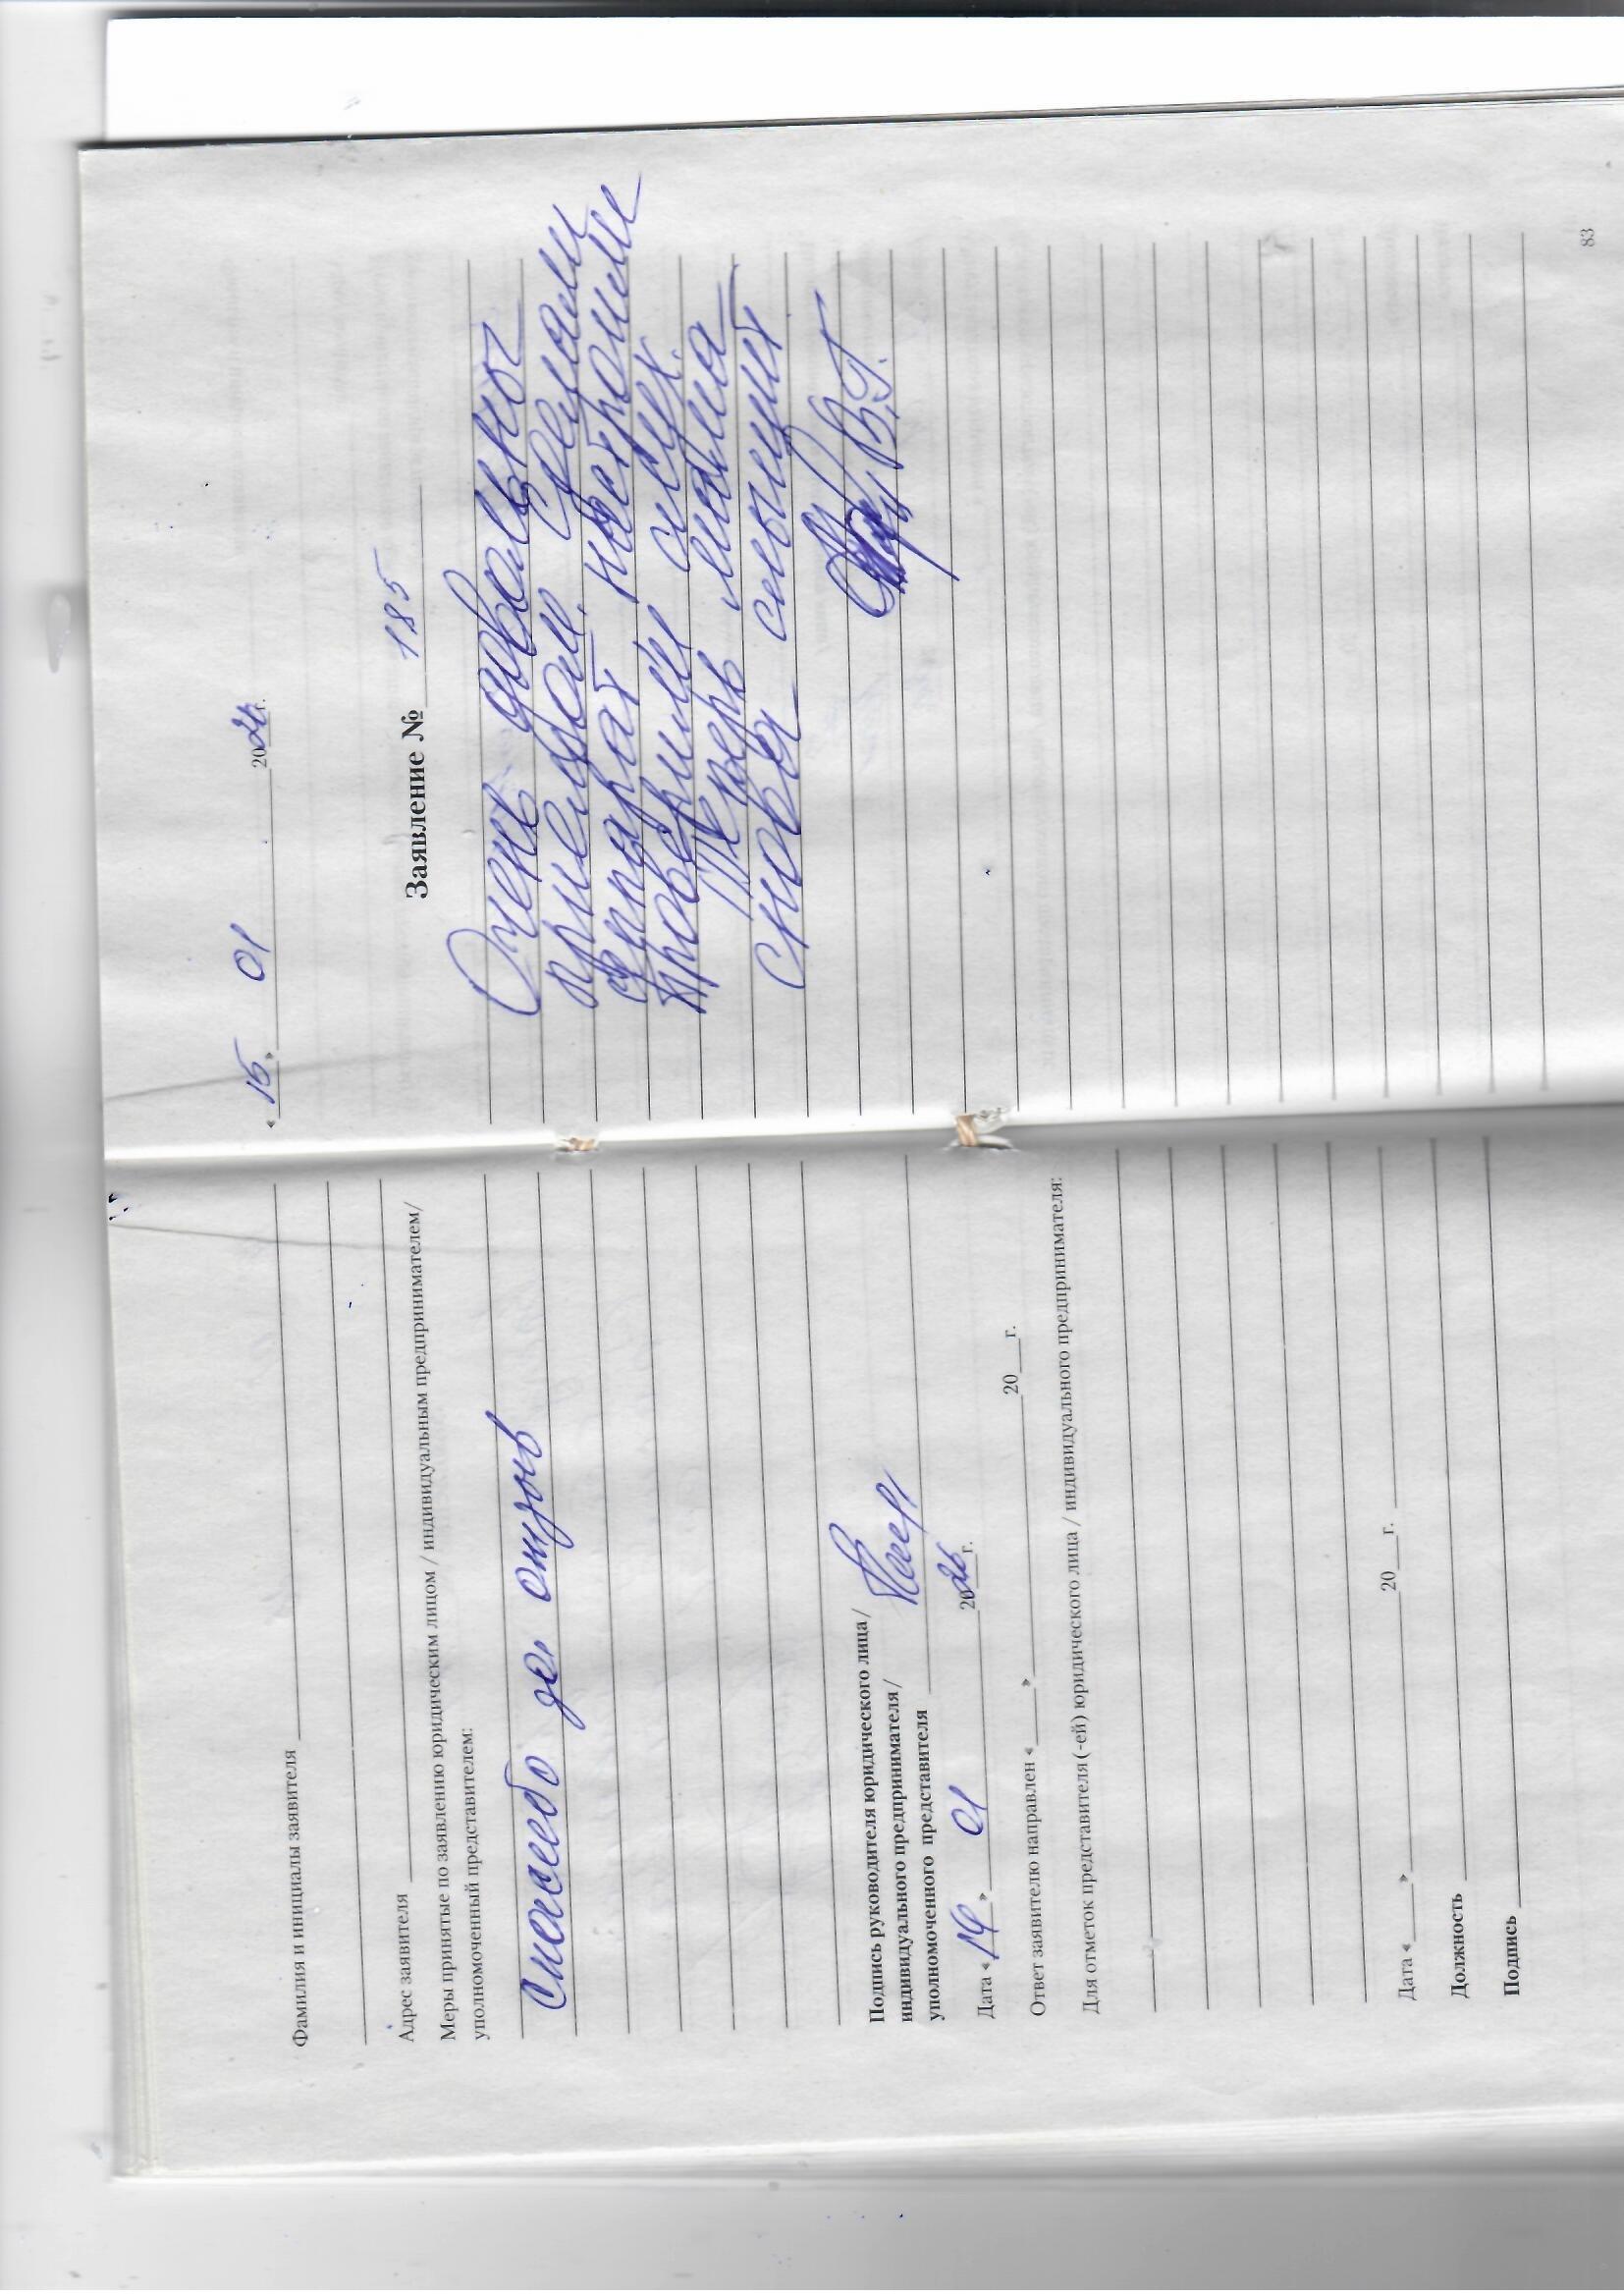 Фамилия и инициалы заявителя
Адрес заявителя
Меры принятые по заявлению юридическим лицом / индивидуальным предпринимателем/
уполномоченный представителем:
Спасибо за отзыв
Подпись руководителя юридического лица/
индивидуального предпринимателя/
уполномоченного представителя
Дата « » 01 2026 г.
Ответ заявителю направлен «___» 20___г.
Для отметок представителя (-ей) юридического лица / индивидуального предпринимателя:
Дата «___» 20___г.
Должность
Подпись
« 15 » 01 2026 г.
Заявление № 185
Очень довольны
приемом,
аппарат настроили
проверили слух.
Теперь мама
снова слышит
В.Г.
83